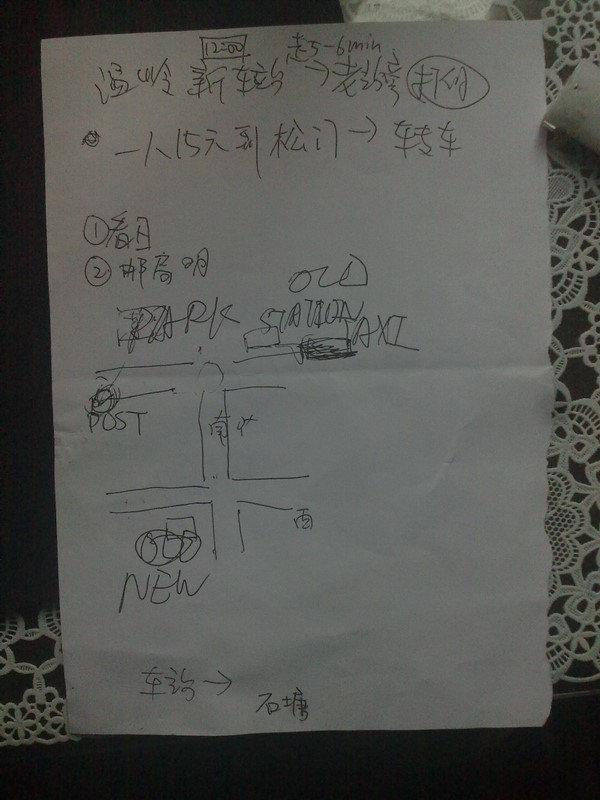 12:00 走5-6min
温岭 新车站→老站旁 打的
一人15元到松门→转车
①看日
②邮局 明
OLD
PARK STATION TAXI
POST
南
西
NEW
车站→
石塘